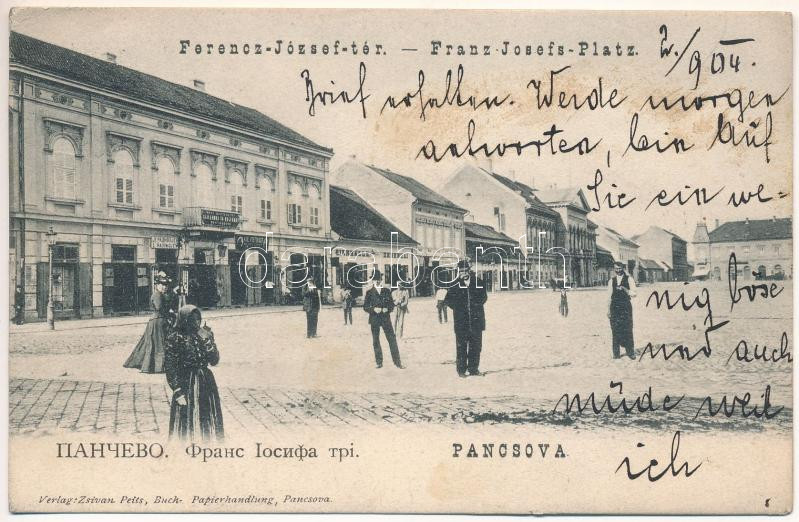 Ferencz-József-tér. — Franz Josefs-Platz.
2/9 04.
Brief erhalten. Werde morgen
antworten, bin auf
Sie ein we-
nig böse
und auch
müde weil
ich
darabanth
ПАНЧЕВО. Франс Іосифа трі.
PANCSOVA
Verlag: Zsivan Peits, Buch- Papierhandlung, Pancsova.